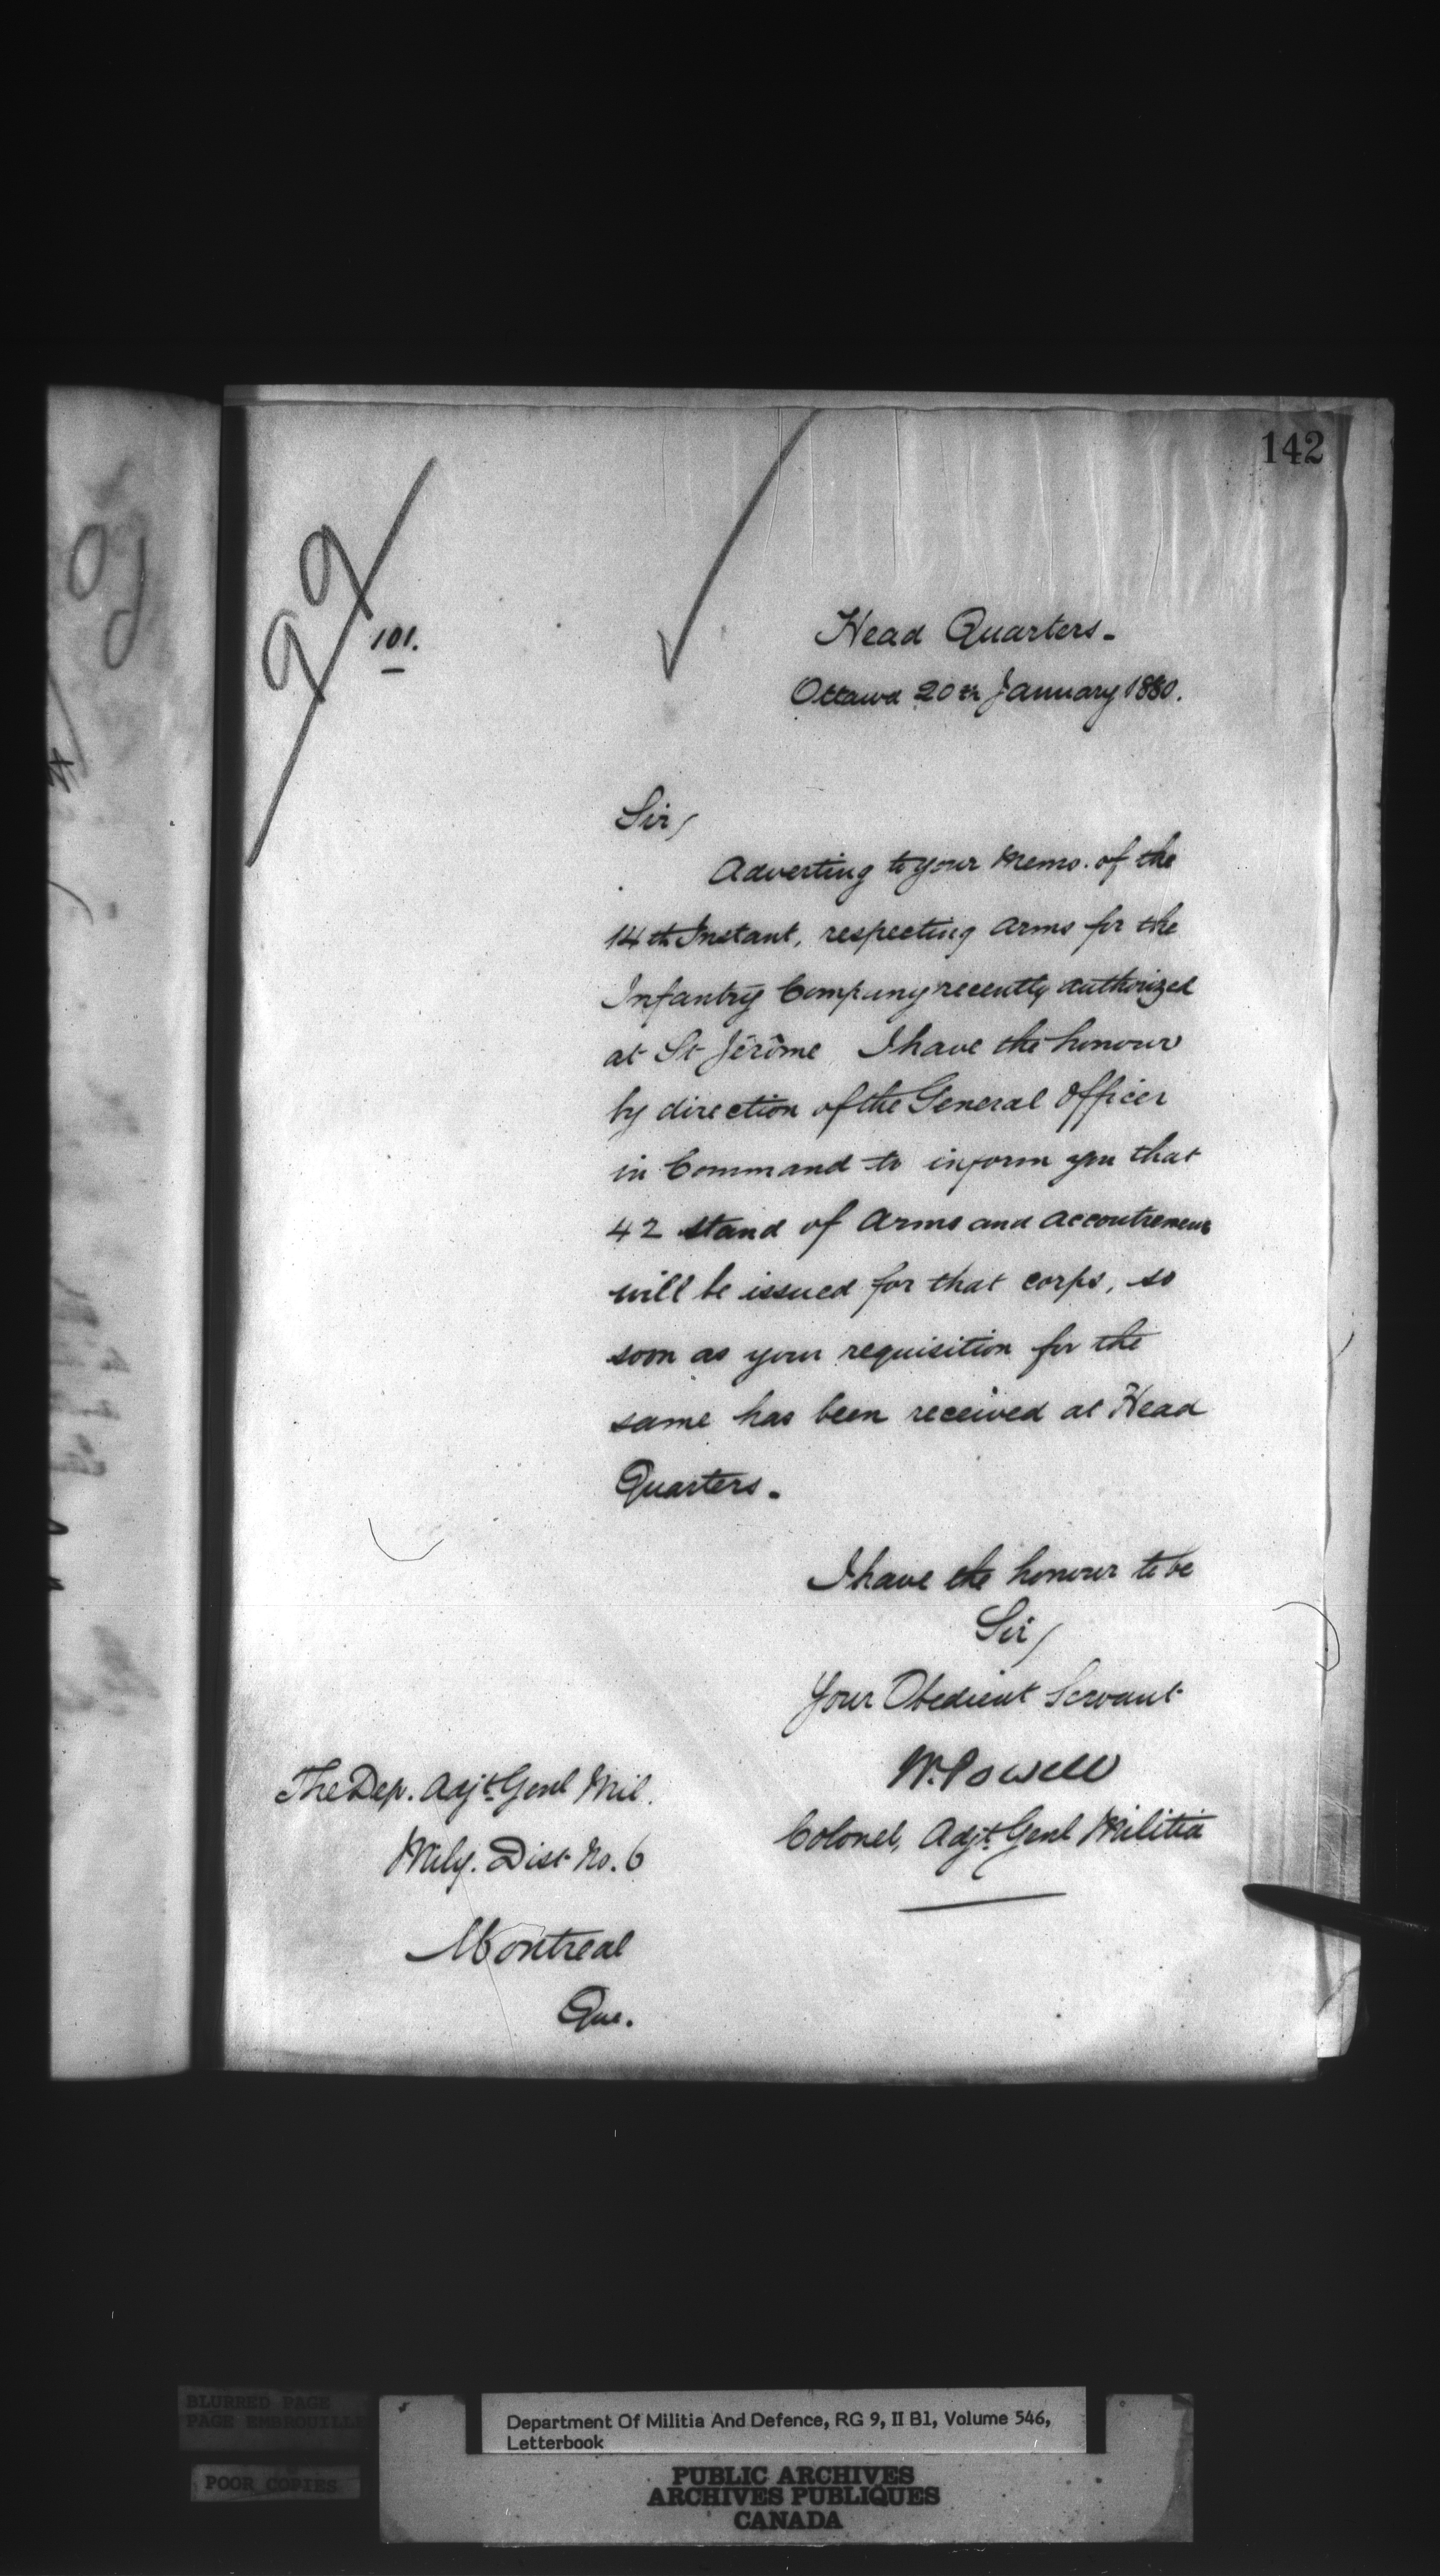 142
99
101.
Head Quarters-
Ottawa 20th January 1880.
Sir,
Adverting to your Memo. of the
14th Instant, respecting Arms for the
Infantry Company recently authorized
at St Jérôme I have the honour
by direction of the General Officer
in Command to inform you that
42 stand of Arms and accoutrements
will be issued for that corps, so
soon as your requisition for the
same has been received at Head
Quarters-
I have the honour to be
Sir,
Your Obedient Servant
W. Powell
Colonel, Adjt. Genl Militia
The Dep. Adjt. Genl Mil.
Mily. Dist No. 6
Montreal
Que.
BLURRED PAGE
PAGE EMBROUILLE
POOR COPIES
Department Of Militia And Defence, RG 9, II B1, Volume 546,
Letterbook
PUBLIC ARCHIVES
ARCHIVES PUBLIQUES
CANADA